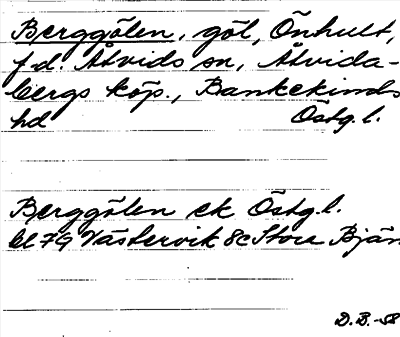 Berggölen, göl, Önhult,
f.d. Åtvids sn, Åtvida-
bergs köp., Bankekinds
hd Östg.l.
Berggölen ek Östg.l.
bl 79 Västervik 8c Stora Bjän
D.B.-58